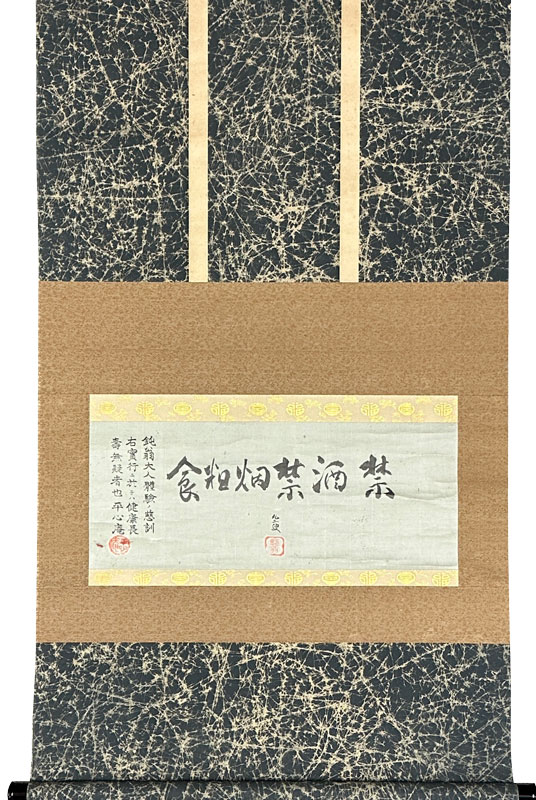 禁酒禁烟粗食
鈍翁大人體驗ノ慈訓
右實行ニ於テハ健康長
壽無疑者也 平心庵